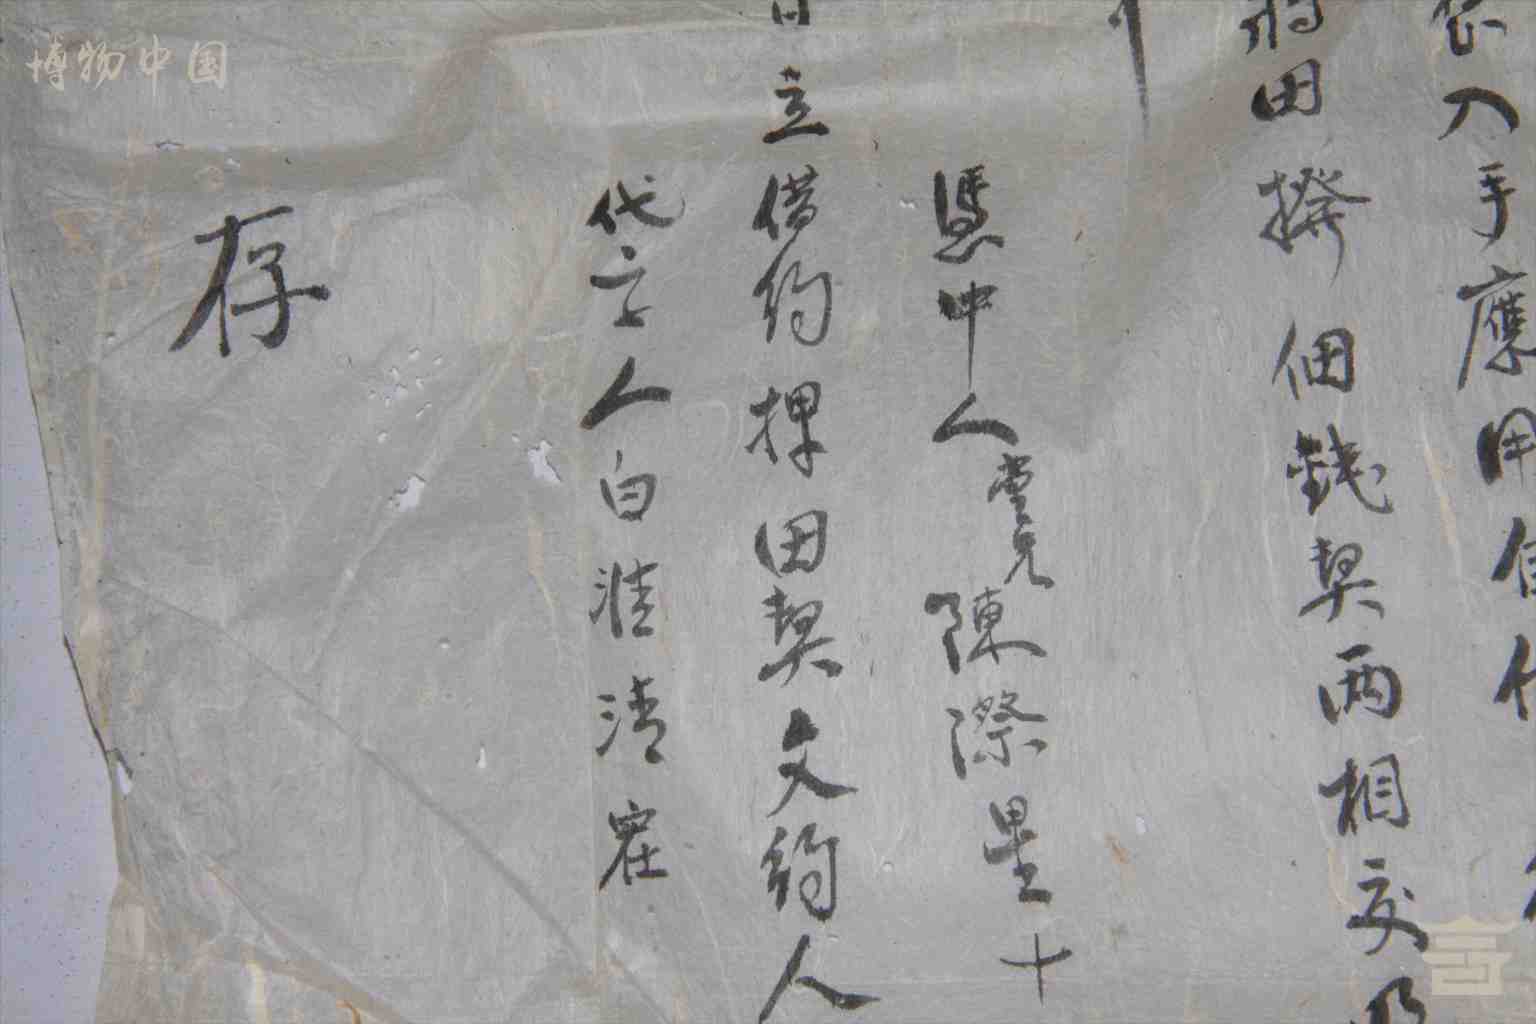 入手應用
田撥佃錢契兩相交
憑中人堂兄陳際星十
日立借約押田契文約人
代字人白淮清
存
博物中国